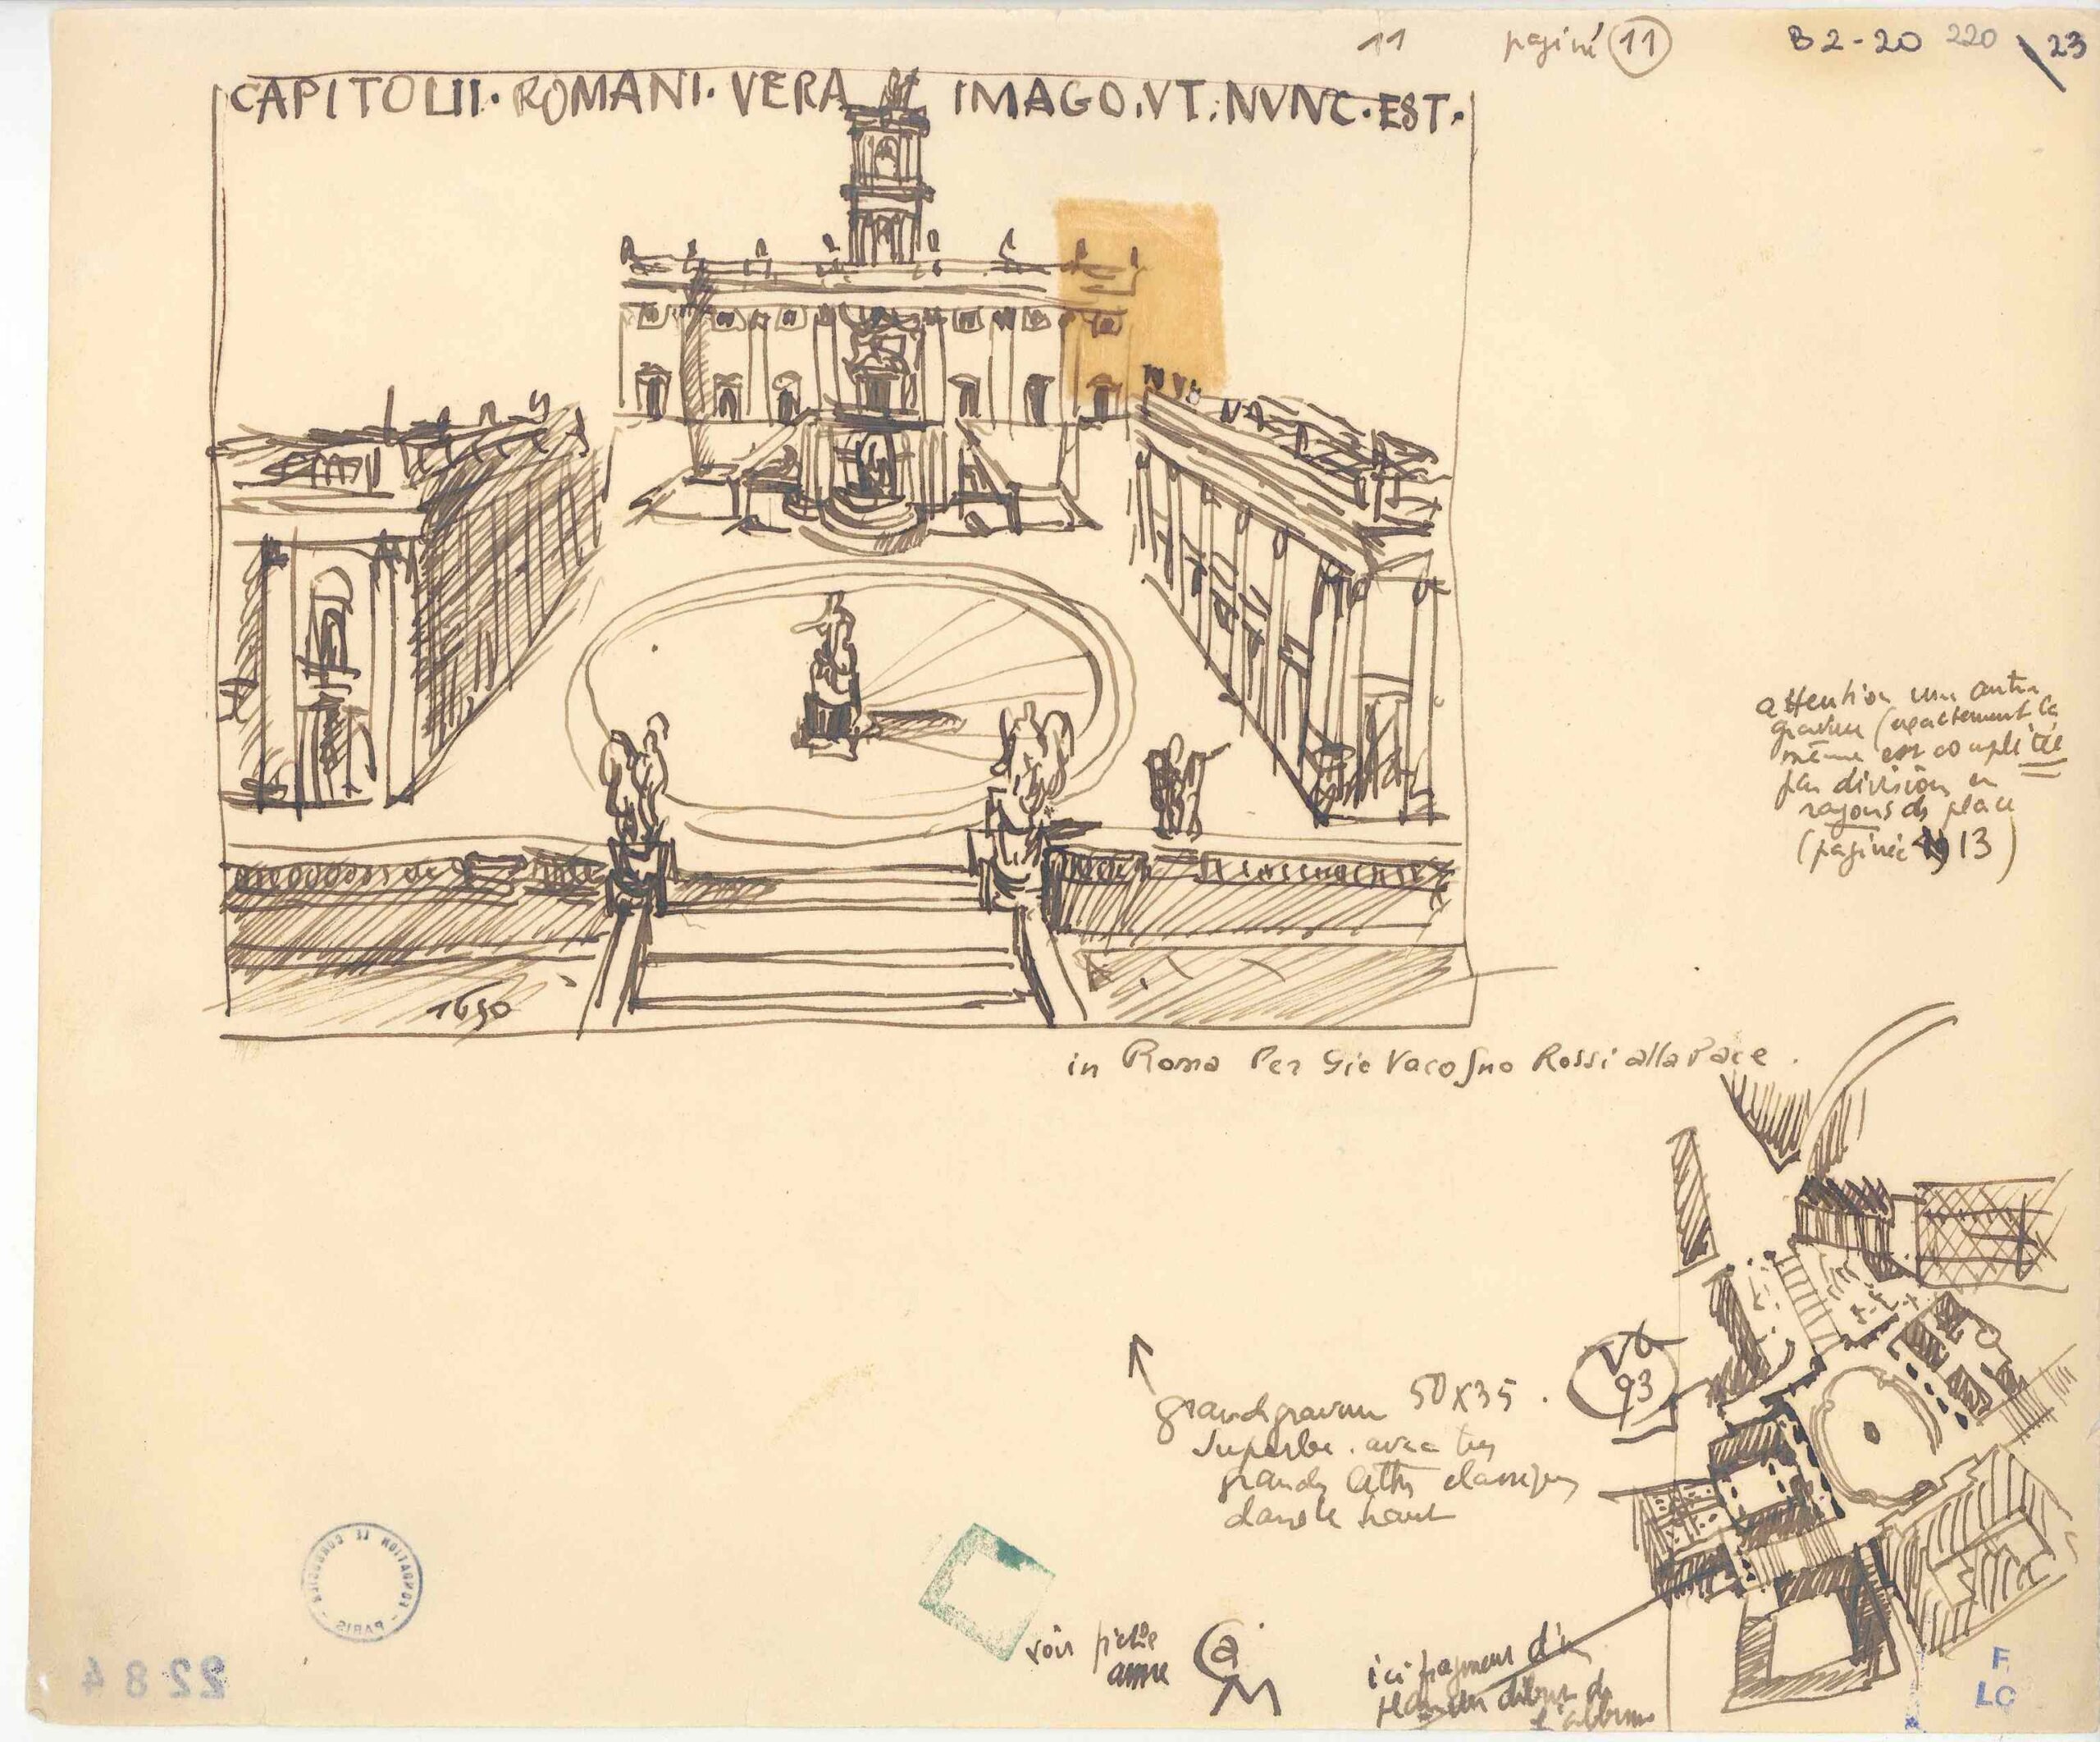 11 paginé 11 B2-20 220 23
CAPITOLII. ROMANI. VERA IMAGO. VT. NVNC. EST.
attention une autre
gravure (exactement la
même est complétée
par division en
rayons de place
(paginée 13)
1650
in Roma Per Gio Jacosno Rossi alla Pace.
V6
93
grande gravure 50x35.
superbe. avec tres
grandes lettres classiques
dans le haut
voir
a
M
ici fragment d'un
début de
l'album
FONDATION LE CORBUSIER - PARIS
2284
F
LC